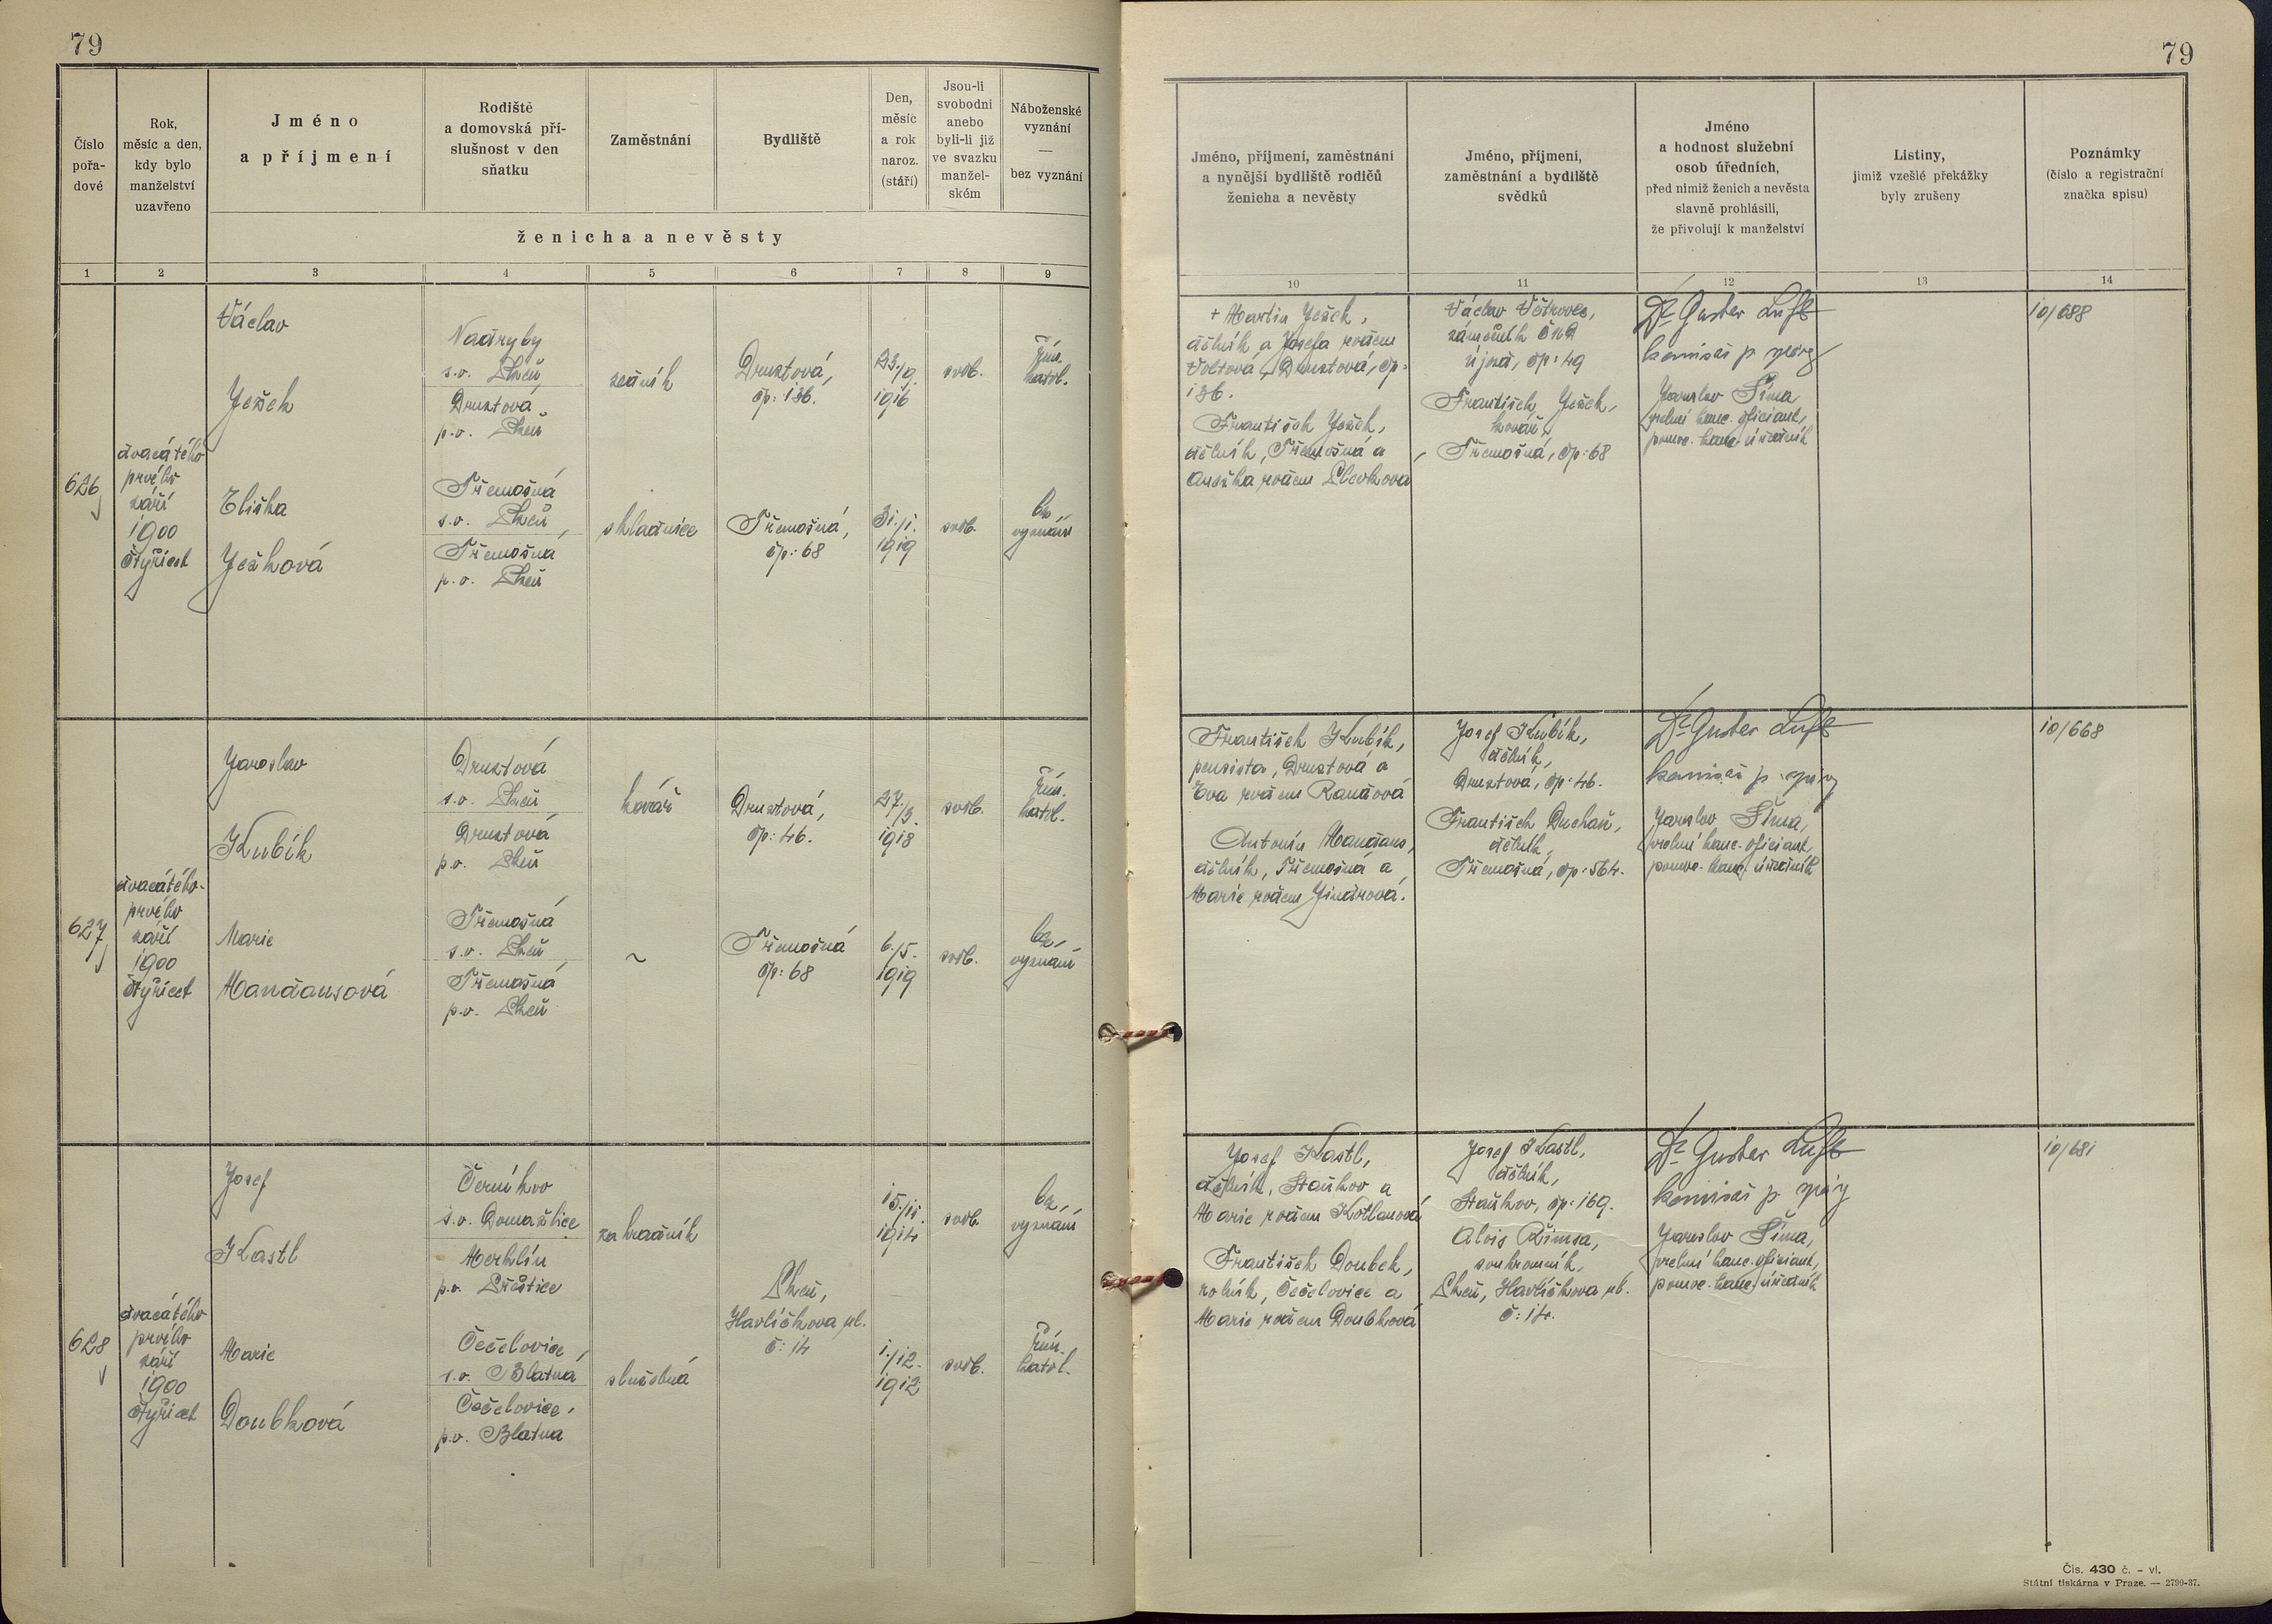 79
79
Číslo
pořa-
dové
Rok,
měsíc a den,
kdy bylo
manželství
uzavřeno
Jméno
a příjmení
Rodiště
a domovská pří-
slušnost v den
sňatku
Zaměstnání
Bydliště
Den,
měsíc
a rok
naroz.
(stáří)
Jsou-li
svobodni
anebo
byli-li již
ve svazku
manžel-
ském
Náboženské
vyznání
—
bez vyznání
ženicha a nevěsty
Jméno, příjmení, zaměstnání
a nynější bydliště rodičů
ženicha a nevěsty
Jméno, příjmení,
zaměstnání a bydliště
svědků
Jméno
a hodnost služební
osob úředních,
před nimiž ženich a nevěsta
slavně prohlásili,
že přivolují k manželství
Listiny,
jimiž vzešlé překážky
byly zrušeny
Poznámky
(číslo a registrační
značka spisu)
1 2 3 4 5 6 7 8 9
10 11 12 13 14
626
dvacátého
prvého
září
1900
čtyřicet
Václav
Ješek
Nadryby
s.o. Plzeň
Druztová
p.o. Plzeň
zedník
Druztová,
čp: 136.
23./9.
1916
svob.
Řím.
katol.
Eliška
Ježková
Třemošná
s.o. Plzeň
Třemošná
p.o. Plzeň
skladnice
Třemošná,
čp: 68
31./1.
1919
svob.
bez
vyznání
+ Martin Ješek,
dělník a Josefa rozem
Voltová, Druztová, čp:
136.
František Ješek,
dělník, Třemošná a
Anežka rozem Plevková
Václav Větrovec,
zámečník ČMD
Újezd, čp: 49
František Ješek,
kovář,
Třemošná, čp: 68
Dr Gustav Luft
komisař p. správy
Jaroslav Šíma,
vrchní kanc. oficiant,
pomoc. kanc. úředník
10/688
627
dvacátého-
prvého
září
1900
čtyřicet
Jaroslav
Kubík
Druztová
s.o. Plzeň
Druztová
p.o. Plzeň
kovář
Druztová,
čp: 46.
27./3.
1918
svob.
Řím.
katol.
Marie
Mandausová
Třemošná
s.o. Plzeň
Třemošná
p.o. Plzeň
~
Třemošná
čp: 68
6./5.
1919
svob.
bez
vyznání
František Kubík,
pensista, Druztová a
Eva rozem Randová
Antonín Mandaus,
dělník, Třemošná a
Marie rozem Jindrová.
Josef Kubík,
dělník,
Druztová, čp: 46.
František Duchaň,
dělník,
Třemošná, čp: 564.
Dr Gustav Luft
komisař p. správy
Jaroslav Šíma,
vrchní kanc. oficiant,
pomoc. kanc. úředník
10/668
628
dvacátého
prvého
září
1900
čtyřicet
Josef
Kastl
Černíkov
s.o. Domažlice
Merklín
p.o. Přeštice
zahradník
15./11.
1914
svob.
bez
vyznání
Plzeň,
Havlíčkova ul.
č: 14
Marie
Doubková
Čečelovice,
s.o. Blatná
Čečelovice,
p.o. Blatná
služebná
1./12.
1912
svob.
Řím.
katol.
Josef Kastl,
dělník, Staňkov a
Marie rozem Kotlanová
František Doubek,
rolník, Čečelovice a
Marie rozem Doubková
Josef Kastl,
dělník,
Staňkov, čp: 169.
Alois Římsa,
soukromník,
Plzeň, Havlíčkova ul.
č: 14.
Dr Gustav Luft
komisař p. správy
Jaroslav Šíma,
vrchní kanc. oficiant,
pomoc. kanc. úředník
10/681
Čís. 430 č. - vl.
Státní tiskárna v Praze. — 2790-37.